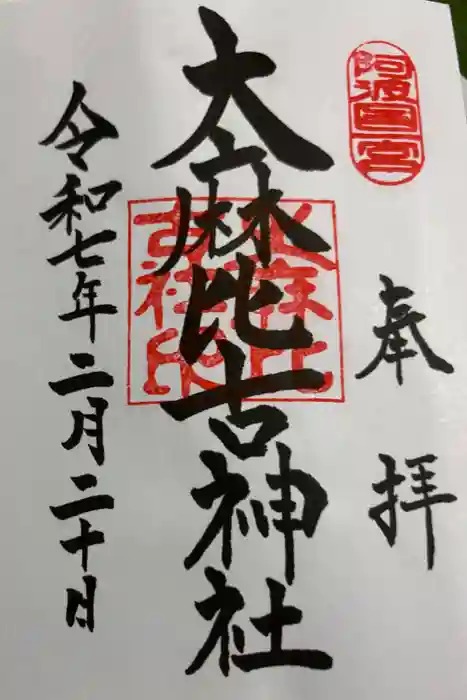 阿波国一宮
奉拝
大麻比古神社
大麻比
古社印
令和七年二月二十日